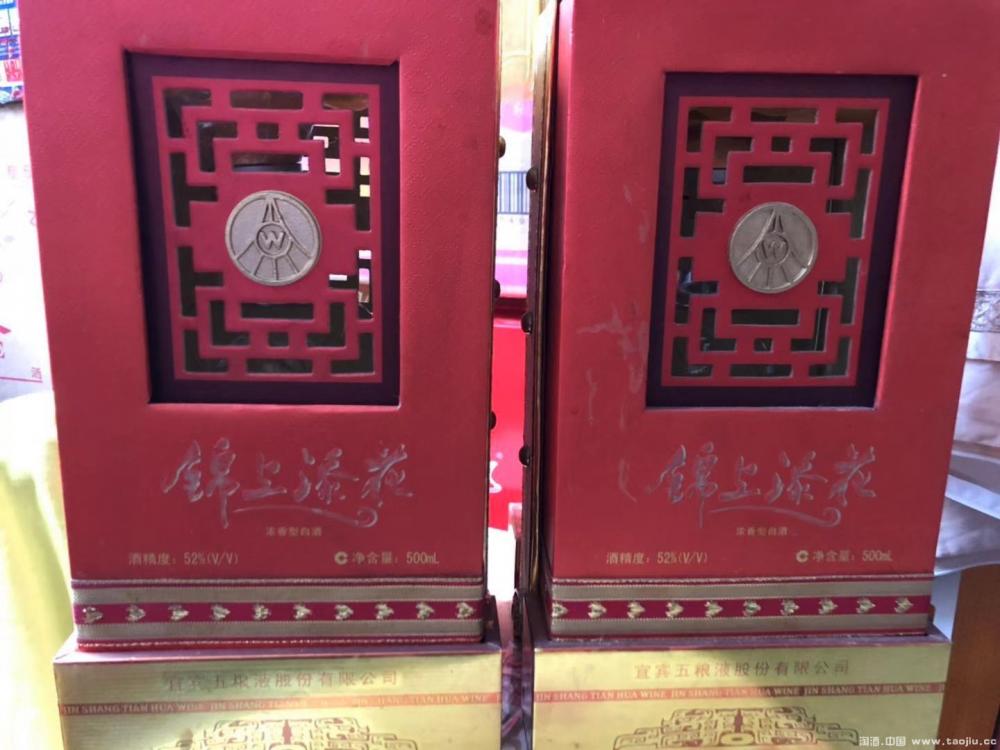 W
锦上添花
浓香型白酒
酒精度：52%(V/V) 净含量：500mL
宜宾五粮液股份有限公司
JIN SHANG TIAN HUA WINE JIN SHANG
W
锦上添花
浓香型白酒
酒精度：52%(V/V) 净含量：500mL
宜宾五粮液股份有限公司
JIN SHANG TIAN HUA WINE JIN SHANG TIAN HUA WINE
淘酒.中国 www.taojiu.cc